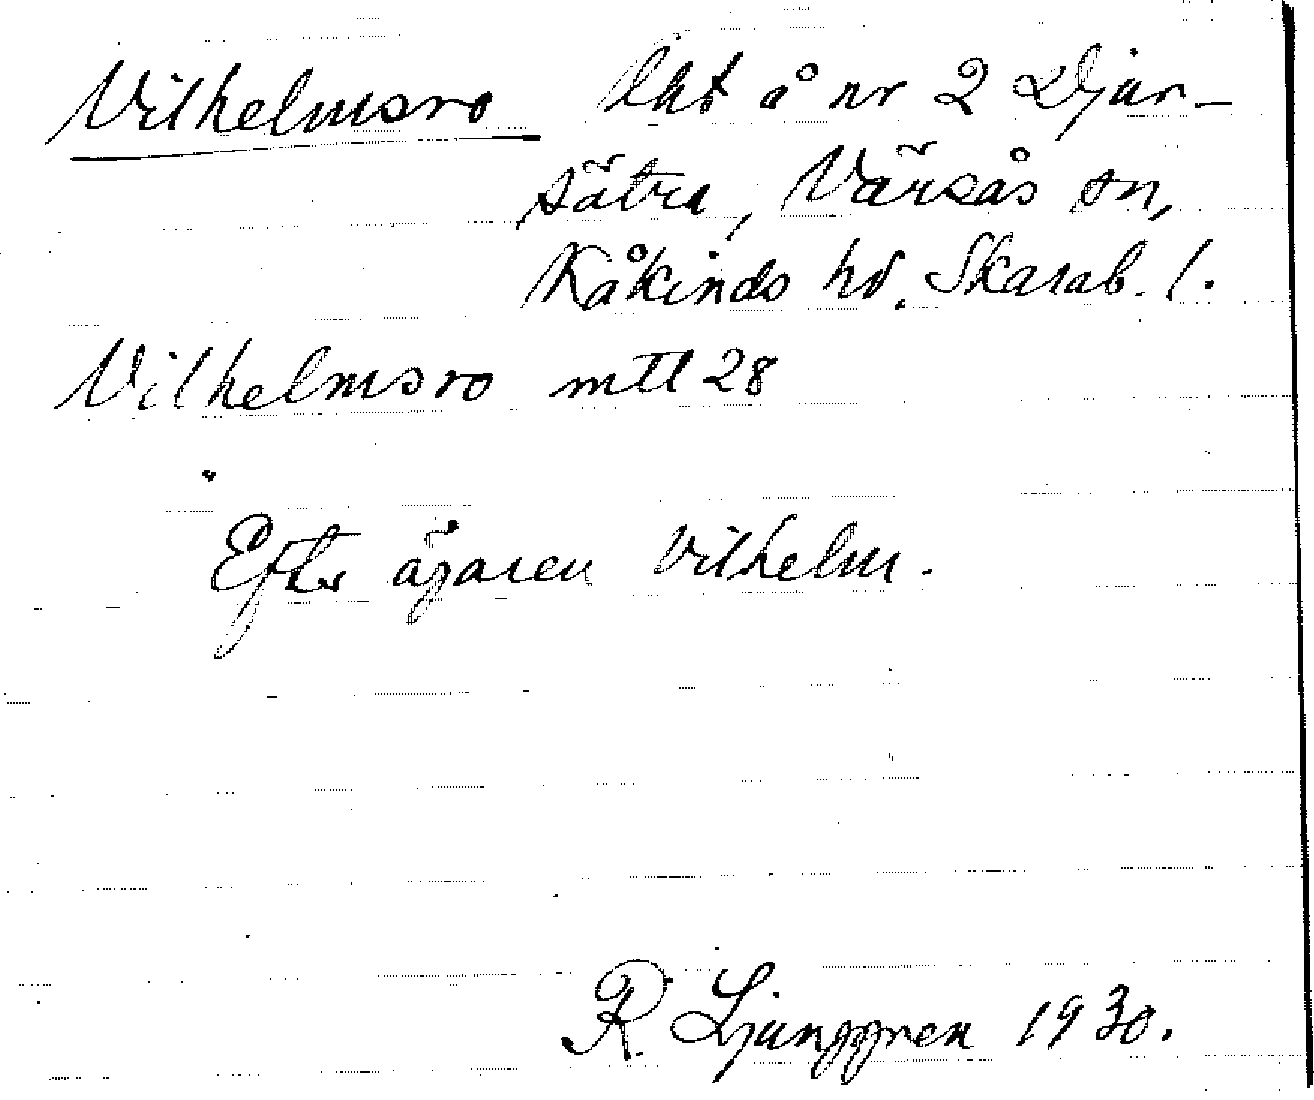 Vilhelmsro lht å nr 2 Djur-
sätra, Värsås sn,
Kåkinds hd. Skarab. l.
Vilhelmsro mtl 28
Efter ägaren Vilhelm.
R. Ljunggren 1930.